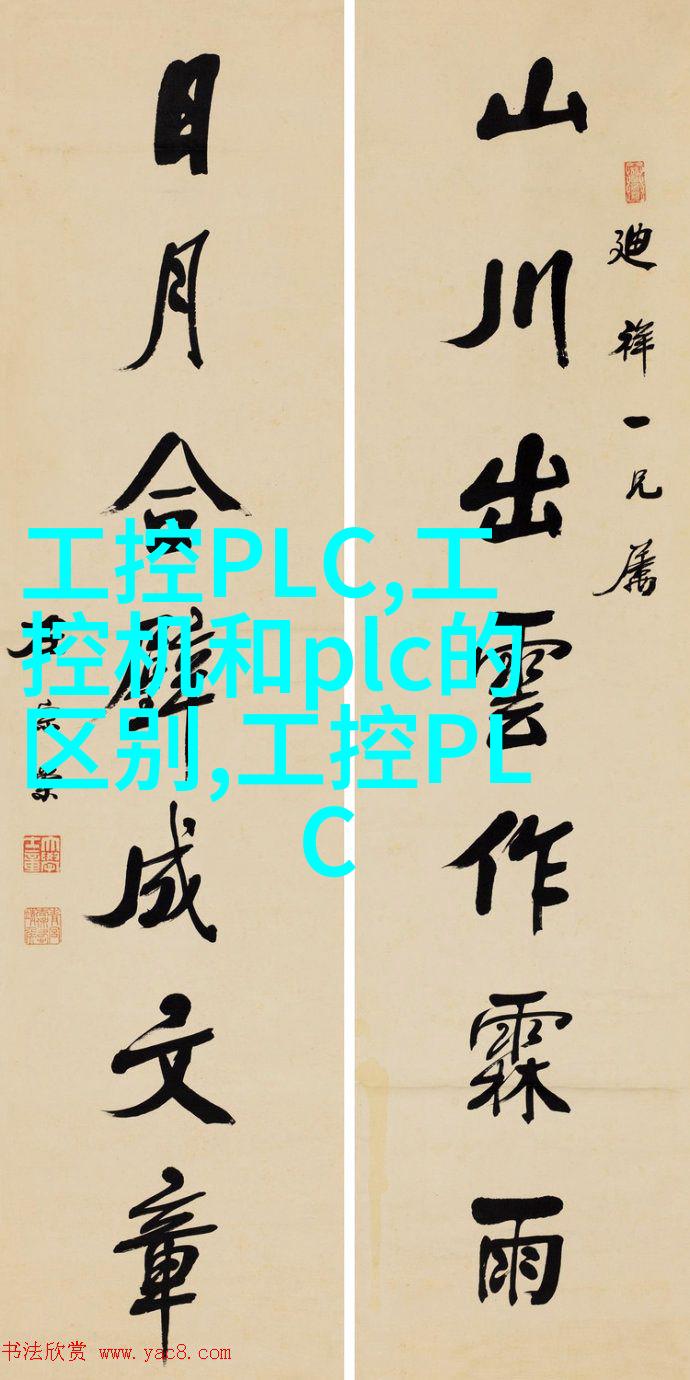 山川出雲作霖雨
廸祥一兄屬
日月合璧成文章
工控PLC,工
控机和plc的
区别,工控PL
C
书法欣赏 www.yac8.com